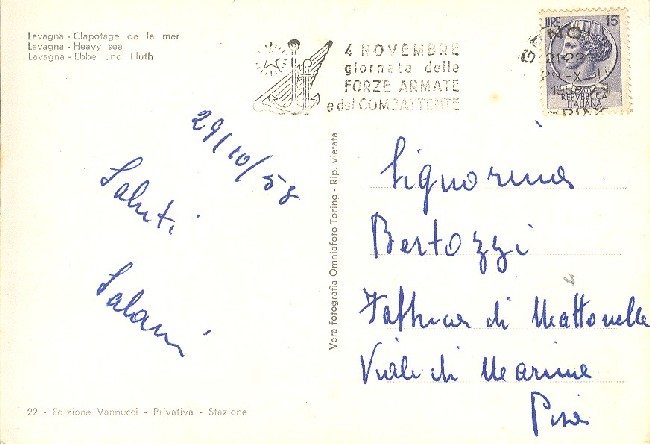 Lavagna - Clapotage de la mer
Lavagna - Heavy sea
Lavagna - Ebbe und Fluth
4 NOVEMBRE
giornata delle
FORZE ARMATE
e del COMBATTENTE
LIRE 15
REPVBBLICA
ITALIANA
29/10/58
Saluti
Salani
Vera fotografia Omniafoto Torino - Rip. vietata
Signorina
Bertozzi
Fabbrica di Mattonelle
Viale di Marina
Pisa
22 - Edizione Vannucci - Privativa - Stazione